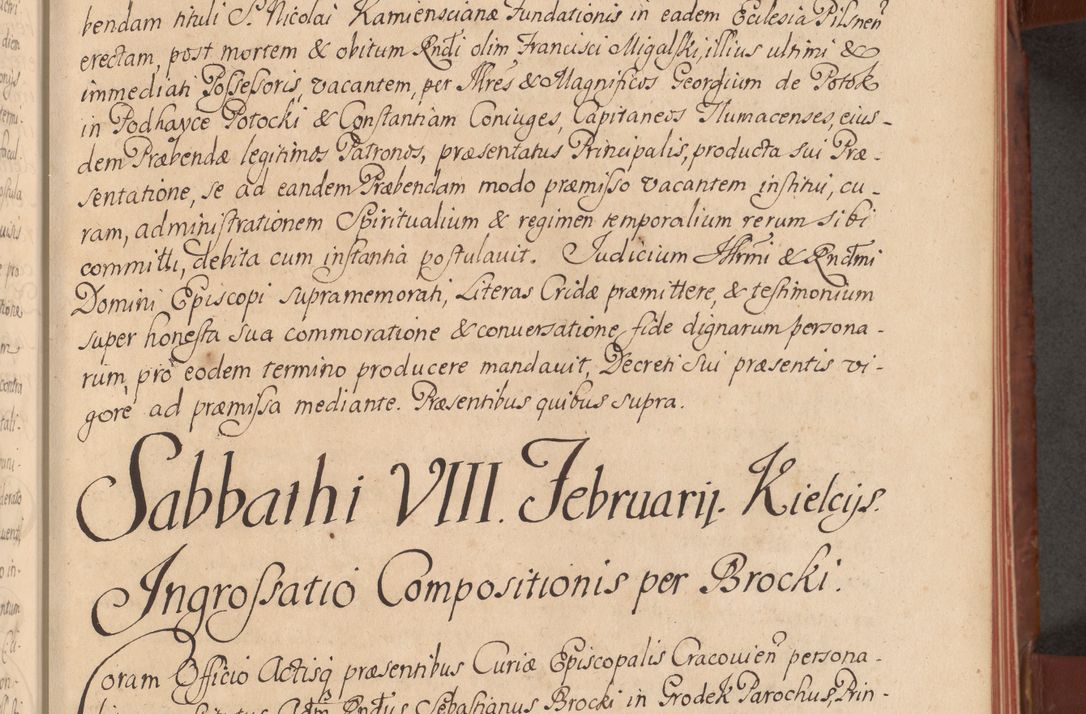 bendam tituli S. Nicolai Kamiensciana Fundationis in eadem Ecclesia Pilsnen
erectam, post mortem & obitum Rndi olim Francisci Migalski, illius ultimi &
immediati Possessoris, vacantem, per Illres & Magnificos Georgium de Potok
in Podhayce Potocki & Constantiam Coniuges, Capitaneos Tlumacenses, eius-
dem Præbendæ legitimos Patronos, præsentatus Principalis, producta sui Præ-
sentatione, se ad eandem Præbendam modo præmisso vacantem institui, cu-
ram, administrationem Spiritualium & regimen temporalium rerum sibi
committi, debita cum instantia postulavit. Judicium Illrmi & Rndmi
Domini Episcopi supramemorati, Literas Cridæ præmittere, & testimonium
super honesta sua commoratione & conversatione fide dignarum persona-
rum, pro eodem termino producere mandavit, Decreti sui præsentis vi-
gore ad præmissa mediante. Præsentibus quibus supra.
Sabbathi VIII. Februarij. Kielcijs.
Ingrossatio Compositionis per Brocki.
Coram Officio Actisq præsentibus Curiæ Episcopalis Cracovien persona-
Rndus Sebastianus Brocki in Grodek Parochus, Prin-